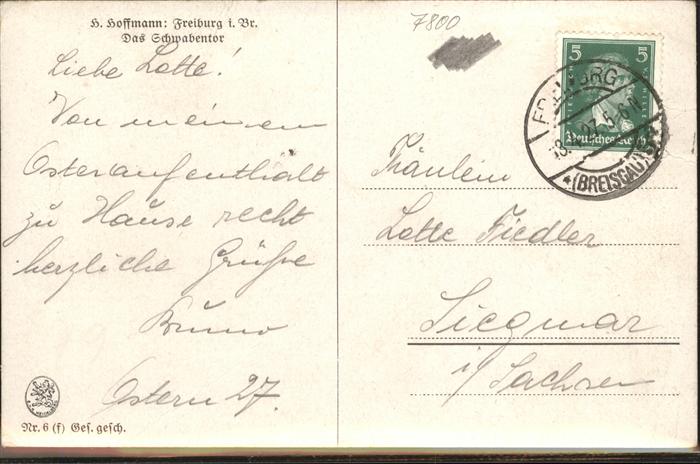 H. Hoffmann: Freiburg i. Br.
Das Schwabentor
Liebe Lotte!
Von meinem
Osteraufenthalt
zu Hause recht
herzliche Grüße
Bruno
Ostern 27.
Nr. 6 (f) Ges. gesch.
7800
5 5
Deutsches Reich
FREIBURG
27. 5-6 N
* (BREISGAU)
Fräulein
Lotte Fiedler
Siegmar
i/ Sachsen